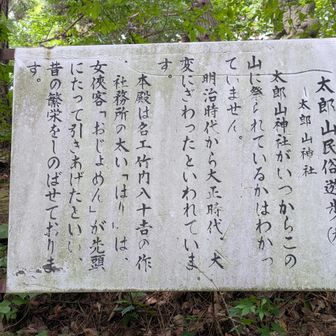 太郎山民俗遊歩
―太郎山神社
太郎山神社がいつからこの
山に祭られているかはわかっ
ていません。
明治時代から大正時代、大
変にぎわったといわれていま
す。
本殿は名工竹内八十吉の作
社務所の太い「はり」は
女侠客「おじょめん」が先頭
にたって引きあげたといい、
昔の繁栄をしのばせておりま
す。